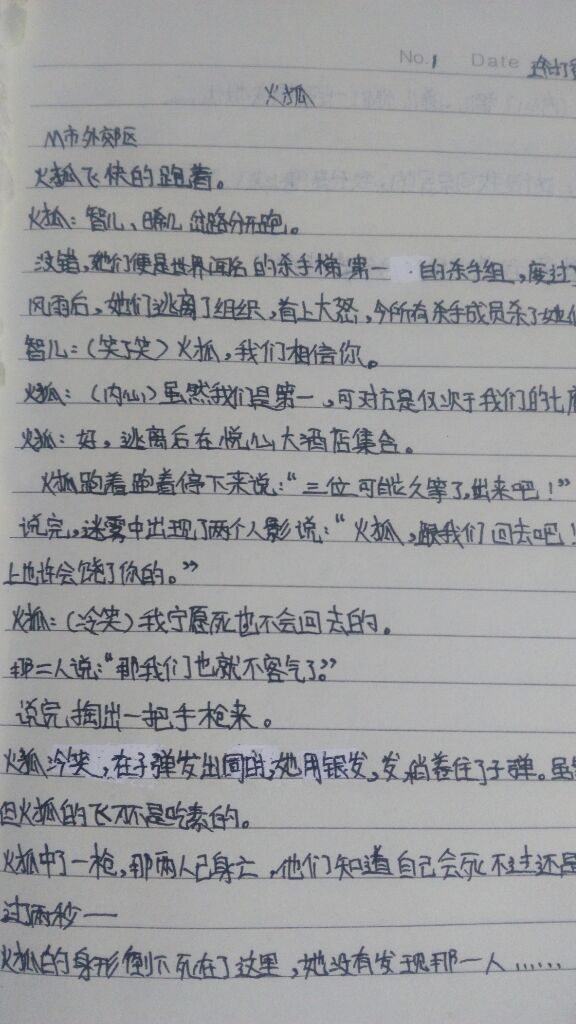 No.1 Date
火狐
M市外郊区
火狐飞快的跑着。
火狐：智儿、晞儿岔路分开跑。
没错，她们便是世界闻名的杀手梯第一的杀手组，度过
风雨后，她们逃离了组织，首上大怒，今所有杀手成员杀了她们
智儿：（笑了笑）火狐，我们相信你。
火狐：（内心）虽然我们是第一，可对方是仅次于我们的
火狐：好，逃离后在悦心大酒店集合。
火狐跑着跑着停下来说：“三位可能久等了，出来吧！”
说完，迷雾中出现了两个人影说：“火狐，跟我们回去吧！
上也许会饶了你的。”
火狐：（冷笑）我宁愿死也不会回去的。
那二人说：“那我们也就不客气了。”
说完，掏出一把手枪来。
火狐冷笑，在子弹发出同时，她用银发，发梢卷住了子弹。虽
但火狐的飞刀不是吃素的。
火狐中了一枪，那两人已身亡，他们知道自己会死不过还是
过两秒——
火狐的身形倒下死在了这里，她没有发现那一人……